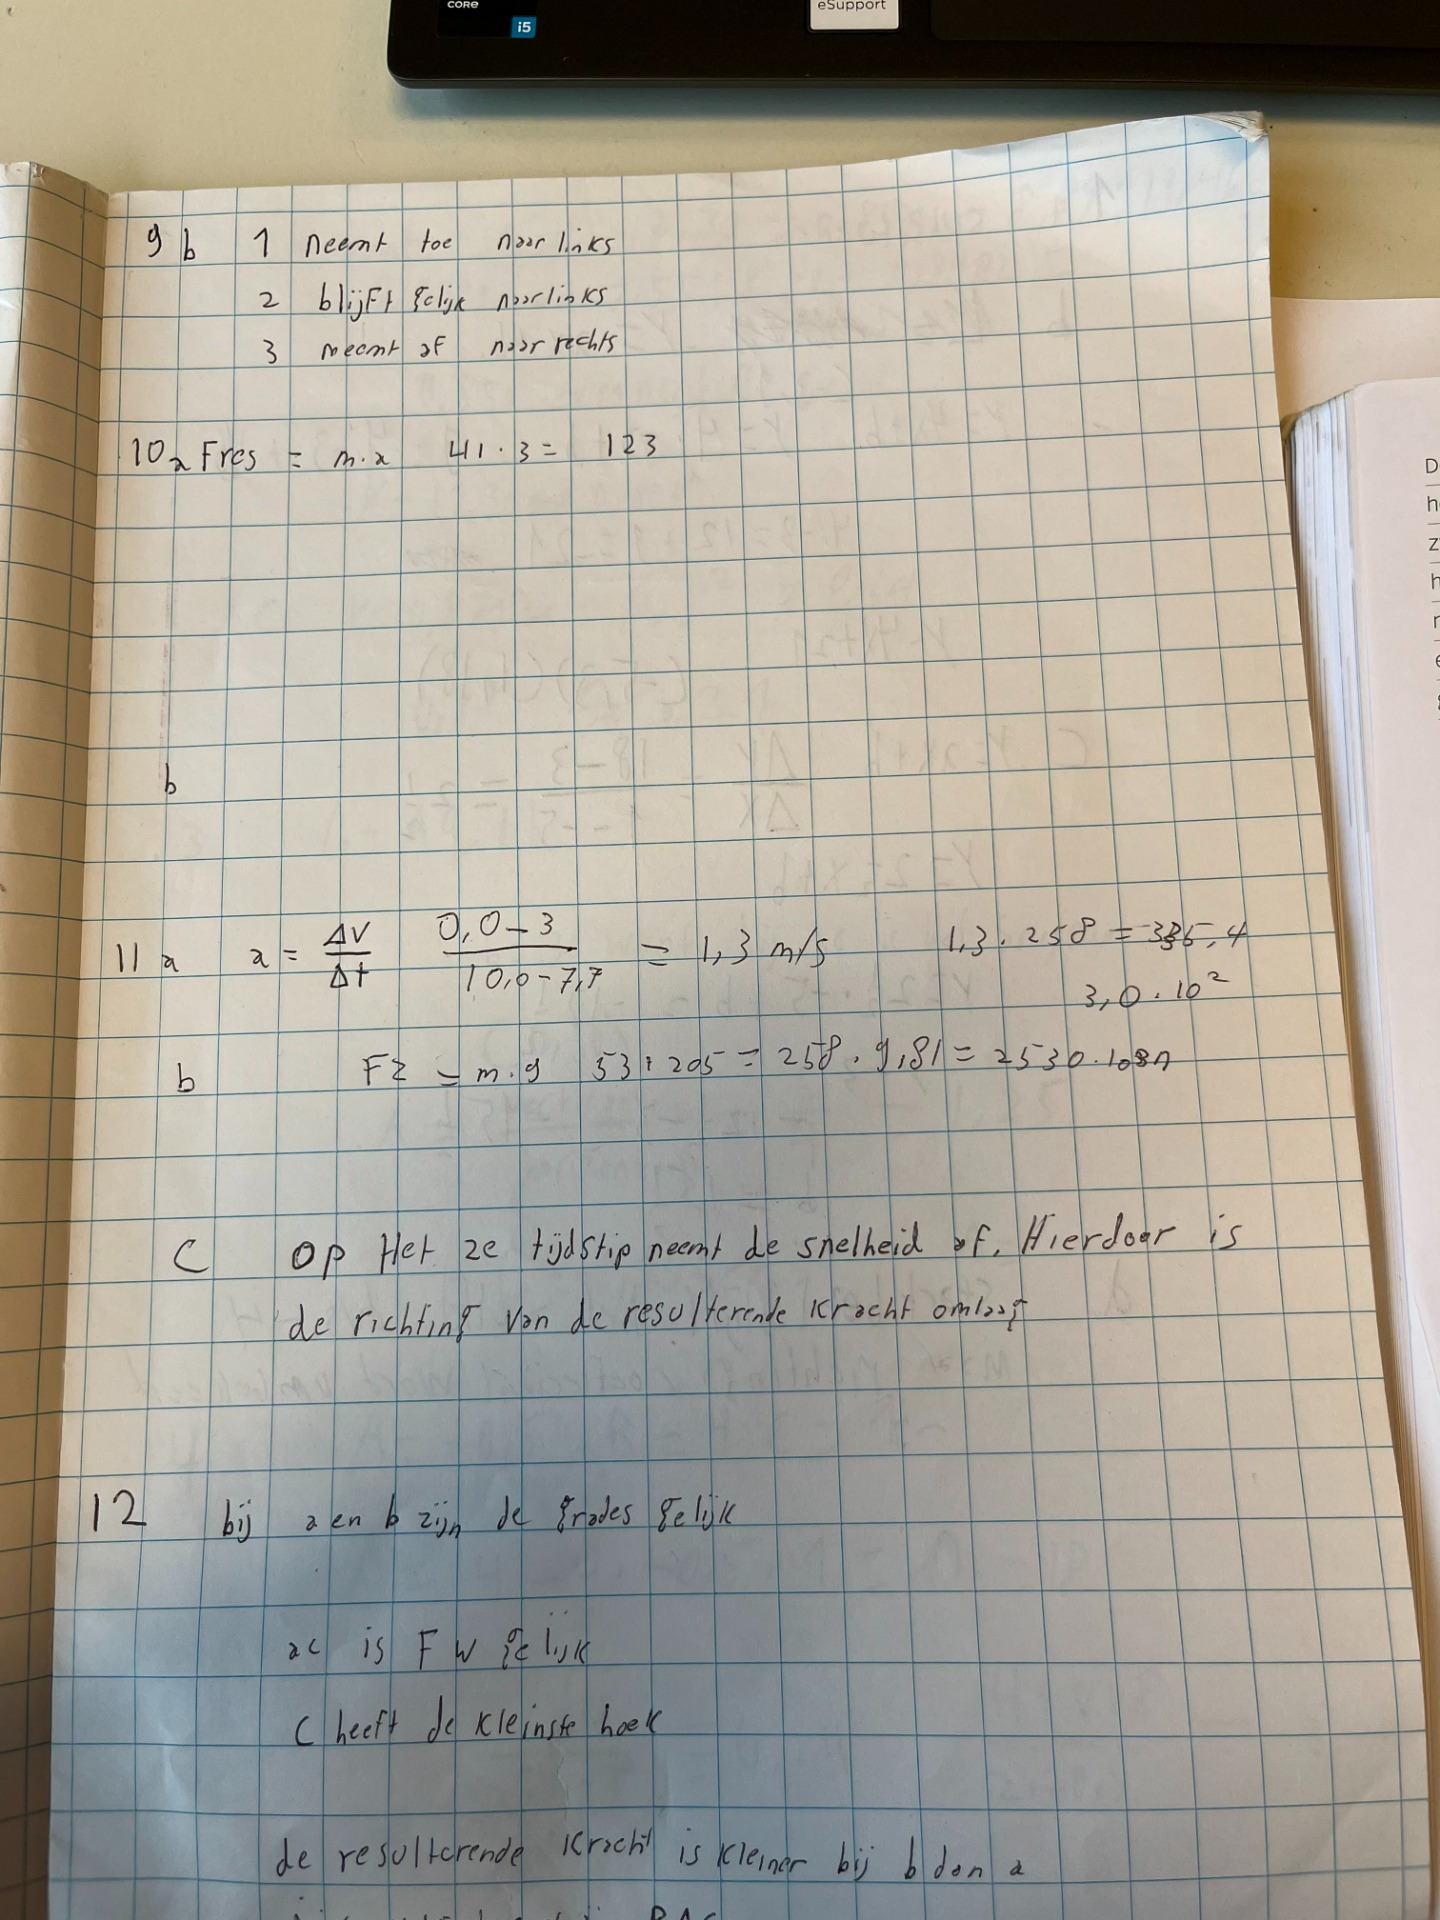 CORE
i5
eSupport
9 b 1 neemt toe naar links
2 blijft gelijk naar links
3 neemt af naar rechts
10a Fres = m.a 41.3= 123
b
11 a a = ΔV/Δt 0,0-3/10,0-7,7 = 1,3 m/s 1,3.258=335,4
3,0.10²
b Fz = m.g 53+205=258.9,81=2530.108N
C op Het 2e tijdstip neemt de snelheid af. Hierdoor is
de richting van de resulterende kracht omlaag
12 bij a en b zijn de grades gelijk
ac is FW gelijk
C heeft de kleinste hoek
de resulterende kracht is kleiner bij b dan a